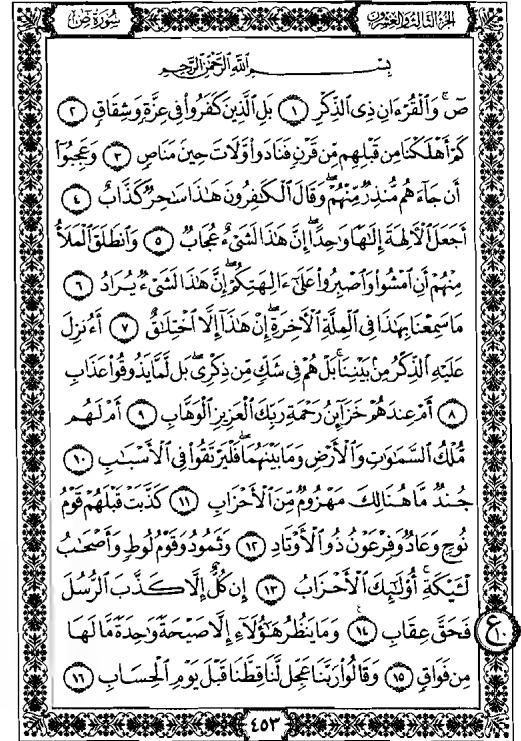 سُورَةُ صٓ الجُزءُ الثَّالِثُ وَالعِشْرُونَ
بِسْمِ ٱللَّهِ ٱلرَّحْمَٰنِ ٱلرَّحِيمِ
صٓ وَٱلْقُرْءَانِ ذِى ٱلذِّكْرِ ١ بَلِ ٱلَّذِينَ كَفَرُوا۟ فِى عِزَّةٍ وَشِقَاقٍ ٢
كَمْ أَهْلَكْنَا مِن قَبْلِهِم مِّن قَرْنٍ فَنَادَوا۟ وَّلَاتَ حِينَ مَنَاصٍ ٣ وَعَجِبُوٓا۟
أَن جَآءَهُم مُّنذِرٌ مِّنْهُمْ ۖ وَقَالَ ٱلْكَٰفِرُونَ هَٰذَا سَٰحِرٌ كَذَّابٌ ٤
أَجَعَلَ ٱلْءَالِهَةَ إِلَٰهًا وَٰحِدًا ۖ إِنَّ هَٰذَا لَشَىْءٌ عُجَابٌ ٥ وَٱنطَلَقَ ٱلْمَلَأُ
مِنْهُمْ أَنِ ٱمْشُوا۟ وَٱصْبِرُوا۟ عَلَىٰٓ ءَالِهَتِكُمْ ۖ إِنَّ هَٰذَا لَشَىْءٌ يُرَادُ ٦
مَا سَمِعْنَا بِهَٰذَا فِى ٱلْمِلَّةِ ٱلْءَاخِرَةِ إِنْ هَٰذَآ إِلَّا ٱخْتِلَٰقٌ ٧ أَءُنزِلَ
عَلَيْهِ ٱلذِّكْرُ مِنۢ بَيْنِنَا ۚ بَلْ هُمْ فِى شَكٍّ مِّن ذِكْرِى ۖ بَل لَّمَّا يَذُوقُوا۟ عَذَابِ
٨ أَمْ عِندَهُمْ خَزَآئِنُ رَحْمَةِ رَبِّكَ ٱلْعَزِيزِ ٱلْوَهَّابِ ٩ أَمْ لَهُم
مُّلْكُ ٱلسَّمَٰوَٰتِ وَٱلْأَرْضِ وَمَا بَيْنَهُمَا ۖ فَلْيَرْتَقُوا۟ فِى ٱلْأَسْبَٰبِ ١٠
جُندٌ مَّا هُنَالِكَ مَهْزُومٌ مِّنَ ٱلْأَحْزَابِ ١١ كَذَّبَتْ قَبْلَهُمْ قَوْمُ
نُوحٍ وَعَادٌ وَفِرْعَوْنُ ذُو ٱلْأَوْتَادِ ١٢ وَثَمُودُ وَقَوْمُ لُوطٍ وَأَصْحَٰبُ
لْـَٔيْكَةِ ۚ أُو۟لَٰٓئِكَ ٱلْأَحْزَابُ ١٣ إِن كُلٌّ إِلَّا كَذَّبَ ٱلرُّسُلَ
فَحَقَّ عِقَابِ ١٤ وَمَا يَنظُرُ هَٰٓؤُلَآءِ إِلَّا صَيْحَةً وَٰحِدَةً مَّا لَهَا
ع ١٠
مِن فَوَاقٍ ١٥ وَقَالُوا۟ رَبَّنَا عَجِّل لَّنَا قِطَّنَا قَبْلَ يَوْمِ ٱلْحِسَابِ ١٦
٤٥٣